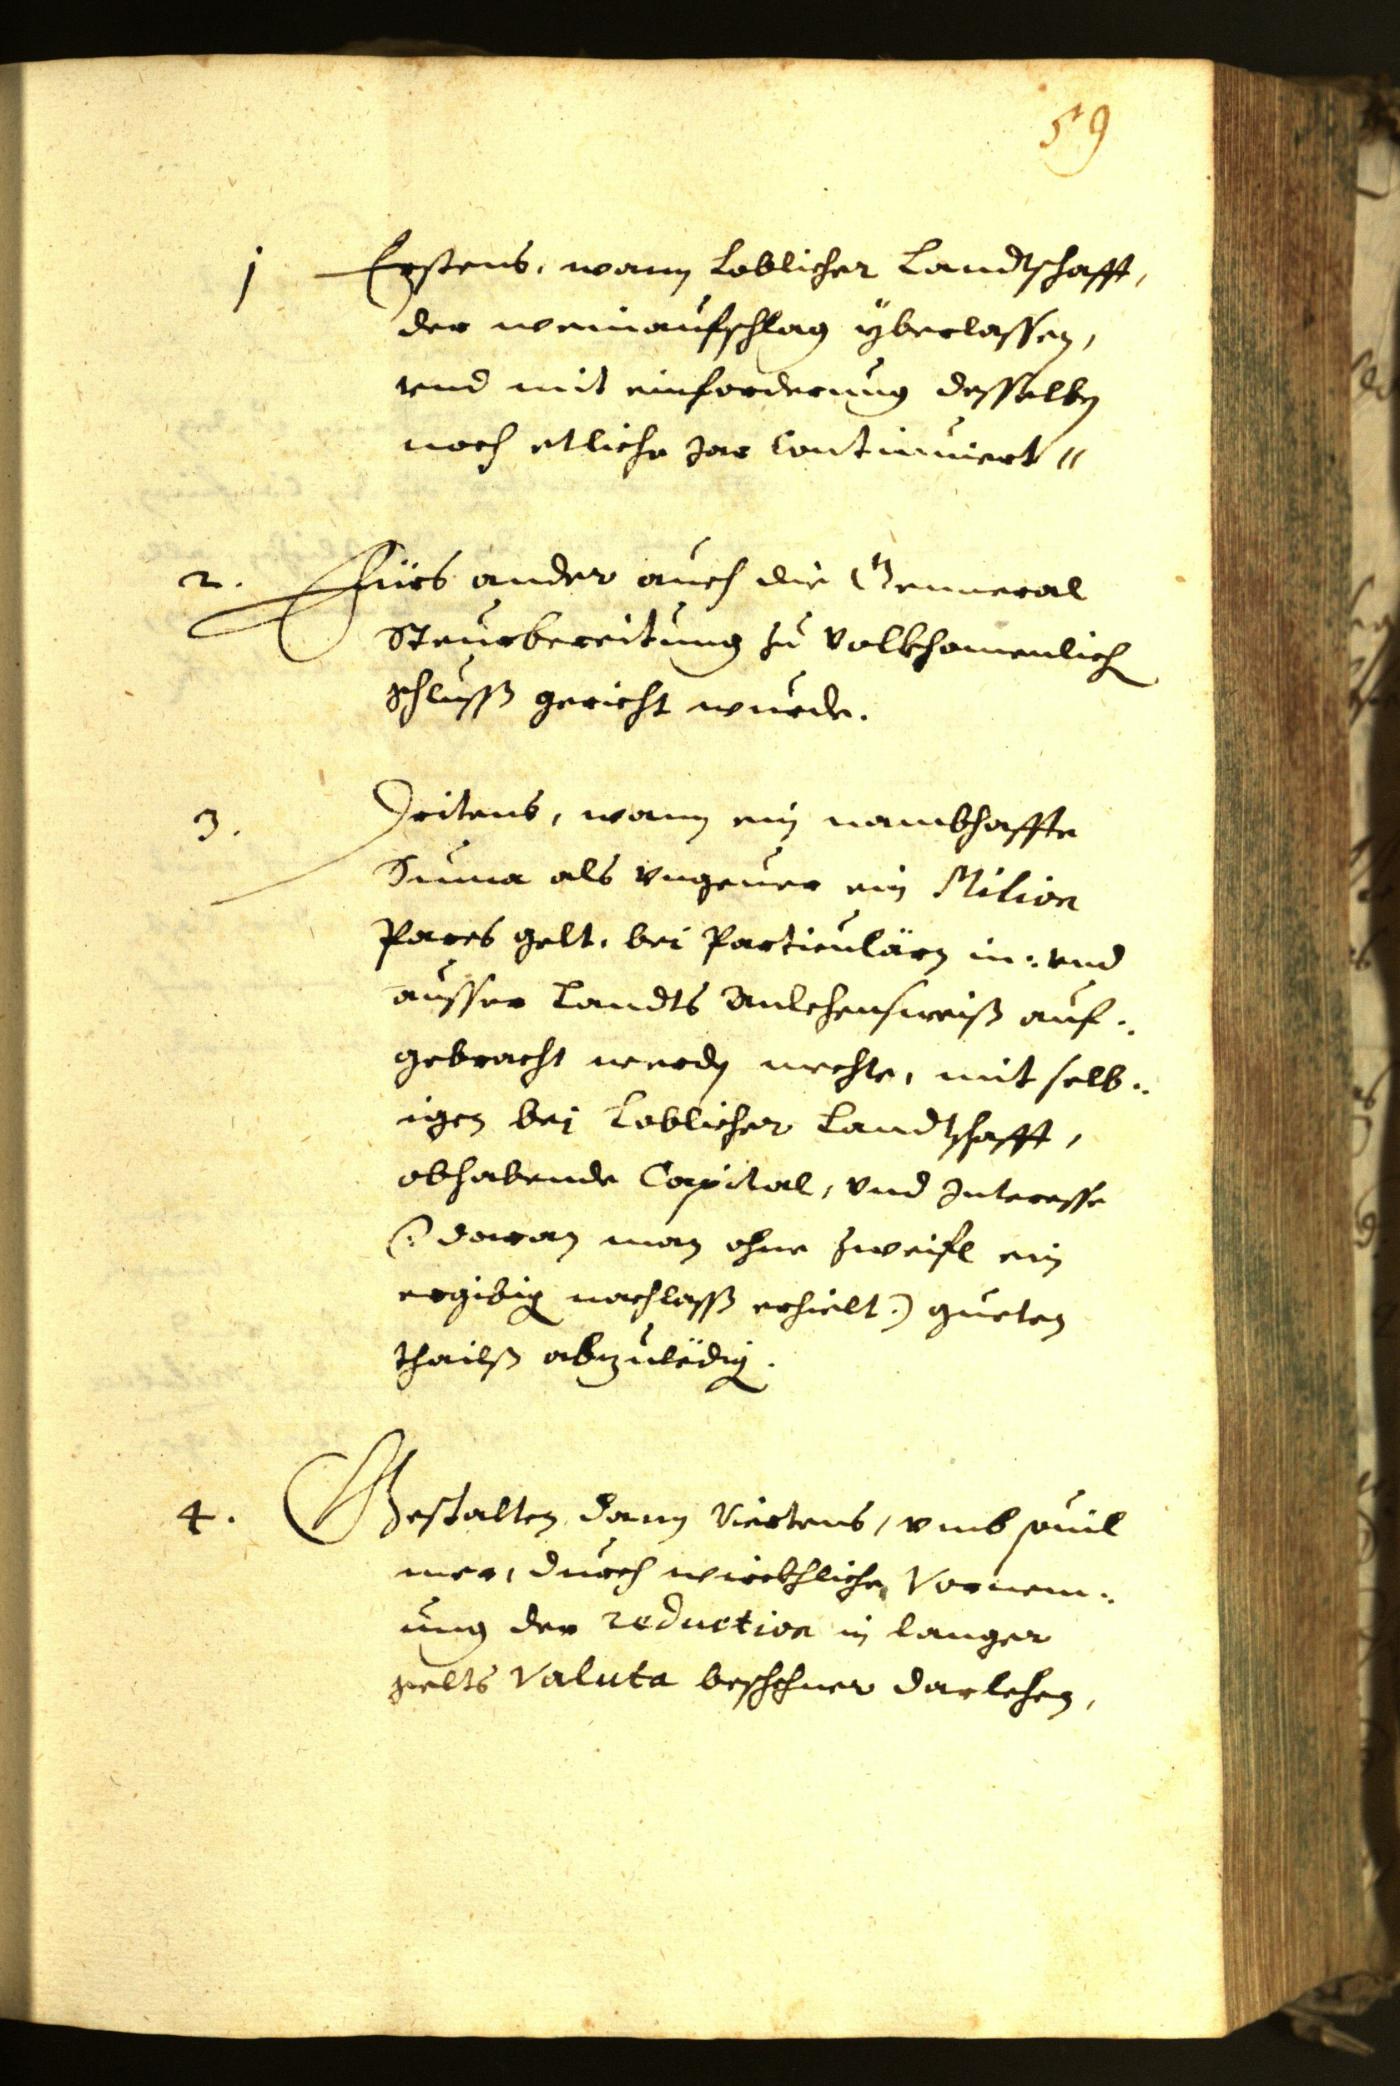 59
1 Erstens, wann Loblicher Landtschafft,
der weinaufschlag yberlassen,
vnd mit einforderung desselben
noch etliche Jar Continuiert
2. Fürs ander auch die Genneral
Steurbereitung zu volkhomenlich
schluss gericht wurde.
3. Dritens, wann ein nambhaffte
Suma als vngeuer ein Milion
Pares gelt, bei Particulärn in: vnd
ausser Landts Anlehensweiß auf:
gebracht werden mechte, mit selb:
igen bei Loblicher Landtschafft,
obhabende Capital, vnd Interesse
(: daran man ohne Zweifl ein
ergibig nachlass erhielt :) gueten
thailß abzuledig.
4. Gestalten dann Viertens, vmb souil
mer, durch wirckhliche Vornem:
ung der reduction in langer
gelts Valuta beschehner darlehen,